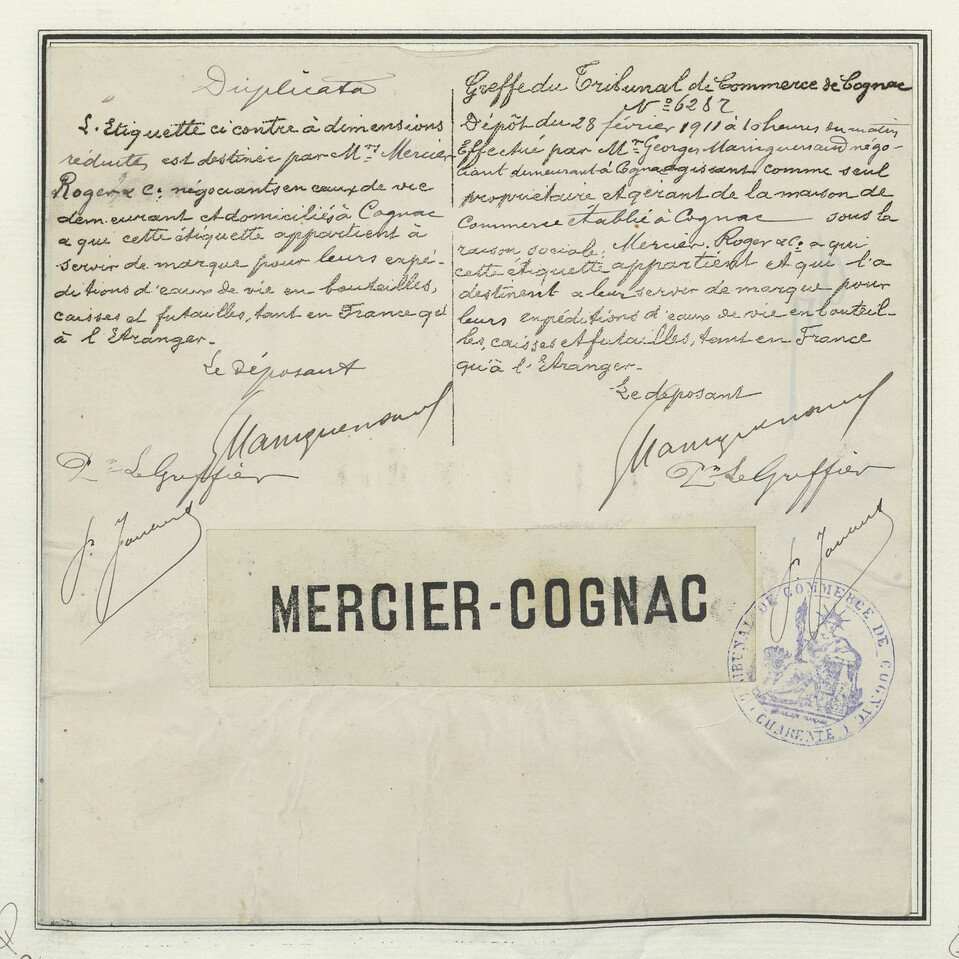 Duplicata
L'Etiquette ci contre à dimensions
réduites, est destinée par M.rs Mercier
Roger & C.ie négociants en eaux de vie
demeurant et domiciliés à Cognac
a qui cette étiquette appartient à
servir de marque pour leurs expé-
ditions d'eaux de vie en bouteilles,
caisses et futailles, tant en France qu'
à l'Etranger.
Le Déposant
P.r Le Greffier
Greffe du Tribunal de Commerce de Cognac
N° 6287
Dépôt du 28 février 1911 à 10 heures du matin
Effectué par M.r Georges négo-
ciant demeurant à Cognac agissant comme seul
propriétaire et gérant de la maison de
Commerce établie à Cognac sous la
raison sociale: Mercier, Roger & C.ie a qui
cette étiquette appartient et qui l'a
destinent a leur servir de marque pour
leurs expéditions d'eaux de vie en bouteil-
les, caisses et futailles, tant en France
qu'à l'Etranger.
Le déposant
P.r Le Greffier
MERCIER-COGNAC
TRIBUNAL DE COMMERCE DE COGNAC
(CHARENTE)